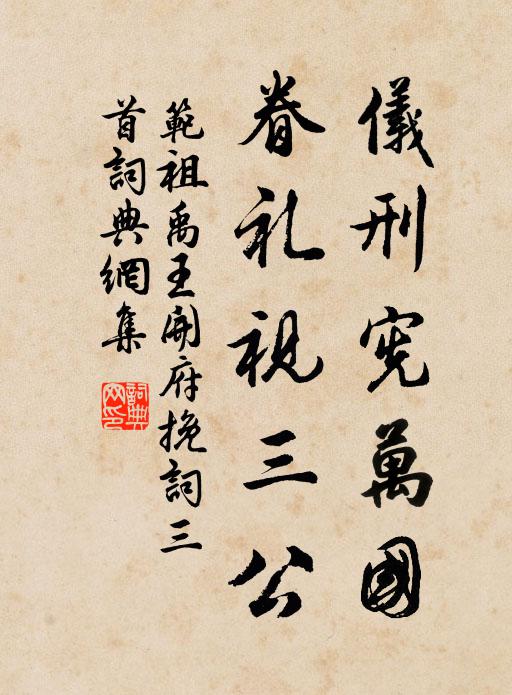 儀刑宪萬國
眷礼視三公
範祖禹王開府挽詞三
首詞典網集
詞典
网印